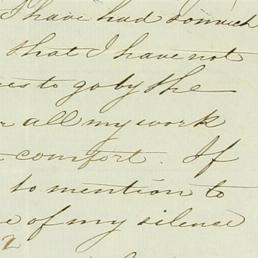 I have had so much
that I have not
to go by the
all my work
comfort. If
to mention to
of my silence